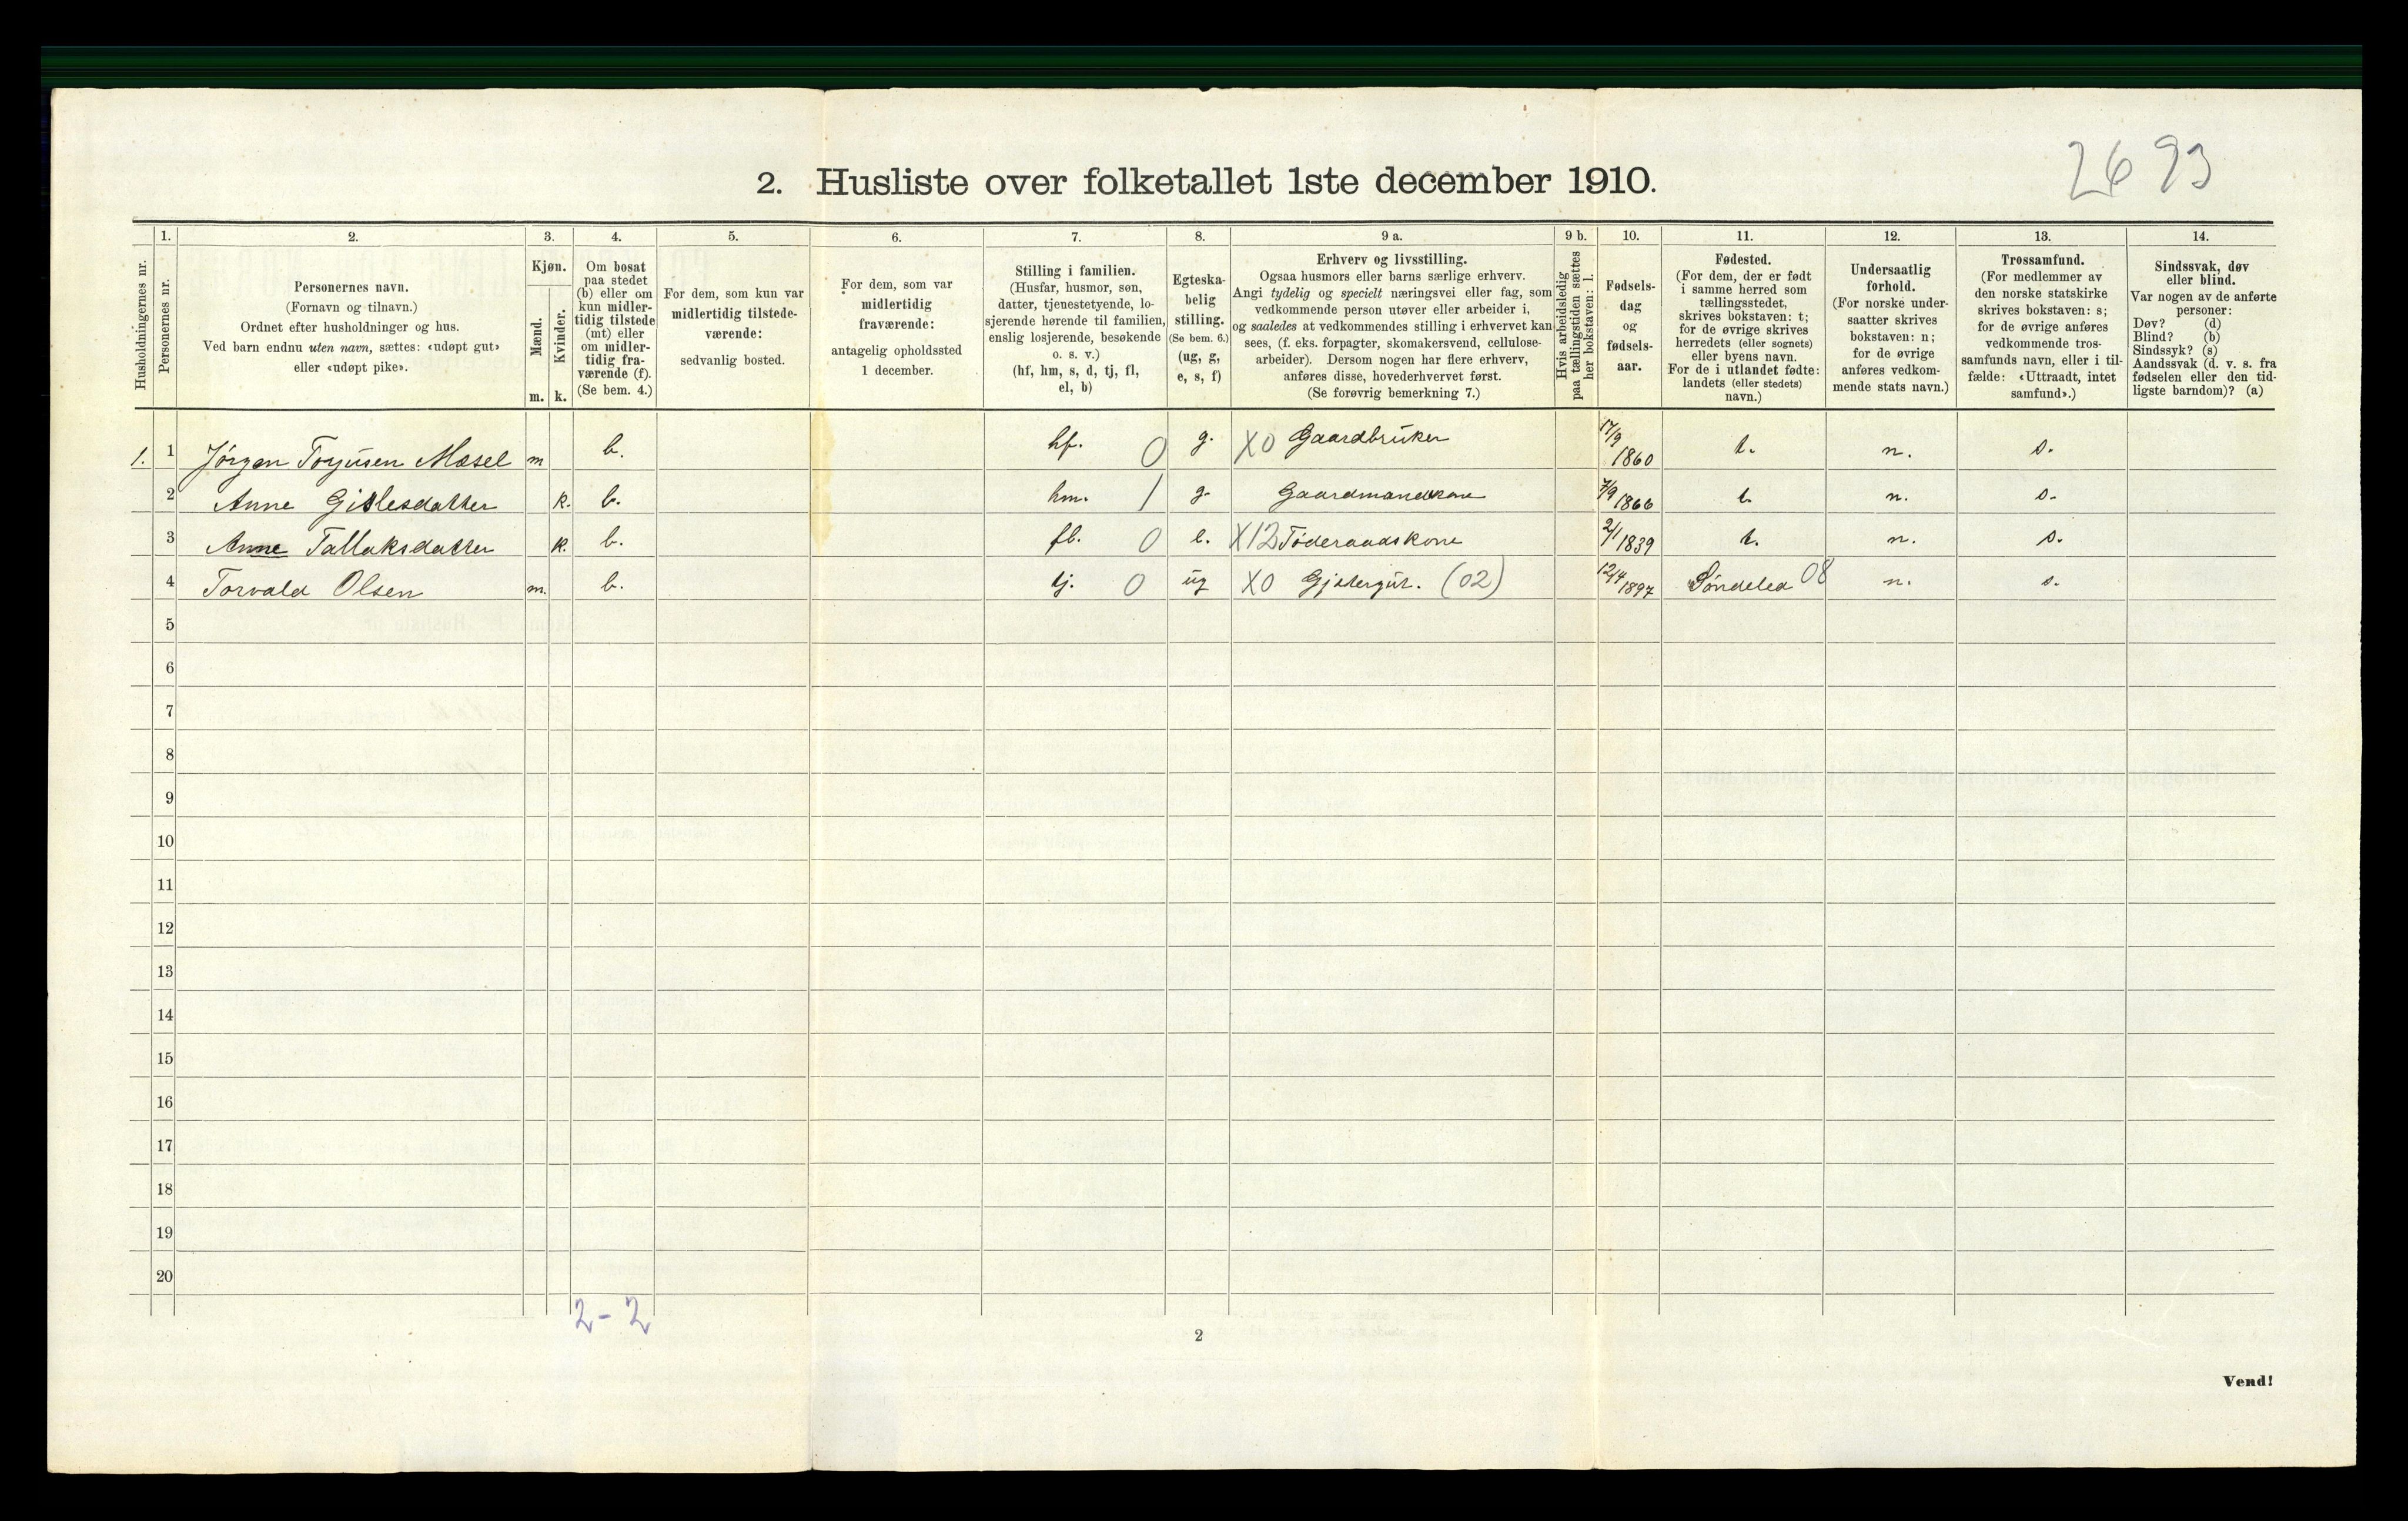 2693
2. Husliste over folketallet 1ste december 1910.
Husholdningernes nr.
1.
Personernes nr.
2.
Personernes navn.
(Fornavn og tilnavn.)
Ordnet efter husholdninger og hus.
Ved barn endnu uten navn, sættes: «udøpt gut»
eller «udøpt pike».
3.
Kjøn.
Mænd.
Kvinder.
m. k.
4.
Om bosat
paa stedet
(b) eller om
kun midler-
tidig tilstede
(mt) eller
om midler-
tidig fra-
værende (f).
(Se bem. 4.)
5.
For dem, som kun var
midlertidig tilstede-
værende:
sedvanlig bosted.
6.
For dem, som var
midlertidig
fraværende:
antagelig opholdssted
1 december.
7.
Stilling i familien.
(Husfar, husmor, søn,
datter, tjenestetyende, lo-
sjerende hørende til familien,
enslig losjerende, besøkende
o. s. v.)
(hf, hm, s, d, tj, fl,
el, b)
8.
Egteska-
belig
stilling.
(Se bem. 6.)
(ug, g,
e, s, f)
9 a.
Erhverv og livsstilling.
Ogsaa husmors eller barns særlige erhverv.
Angi tydelig og specielt næringsvei eller fag, som
vedkommende person utøver eller arbeider i,
og saaledes at vedkommendes stilling i erhvervet kan
sees, (f. eks. forpagter, skomakersvend, cellulose-
arbeider). Dersom nogen har flere erhverv,
anføres disse, hovederhvervet først.
(Se forøvrig bemerkning 7.)
9 b.
Hvis arbeidsledig
paa tællingstiden sættes
her bokstaven: l.
10.
Fødsels-
dag
og
fødsels-
aar.
11.
Fødested.
(For dem, der er født
i samme herred som
tællingsstedet,
skrives bokstaven: t;
for de øvrige skrives
herredets (eller sognets)
eller byens navn.
For de i utlandet fødte:
landets (eller stedets)
navn.)
12.
Undersaatlig
forhold.
(For norske under-
saatter skrives
bokstaven: n;
for de øvrige
anføres vedkom-
mende stats navn.)
13.
Trossamfund.
(For medlemmer av
den norske statskirke
skrives bokstaven: s;
for de øvrige anføres
vedkommende tros-
samfunds navn, eller i til-
fælde: «Uttraadt, intet
samfund».)
14.
Sindssvak, døv
eller blind.
Var nogen av de anførte
personer:
Døv? (d)
Blind? (b)
Sindssyk? (s)
Aandssvak (d. v. s. fra
fødselen eller den tid-
ligste barndom)? (a)
1. 1 Jörgen Torjusen Mæsel m b. hf. 0 g. X0 Gaardbruker 17/9 1860 t. n. s.
2 Anne Gislesdatter k. b. hm. 1 g. Gaardmandskone 7/9 1866 t. n. s.
3 Anne Tallaksdatter k. b. fl. 0 e. X12 Föderaadskone 2/1 1839 t. n. s.
4 Torvald Olsen m. b. tj. 0 ug X0 Gjætergut. (02) 12/4 1897 Söndeled 08 n. s.
5
6
7
8
9
10
11
12
13
14
15
16
17
18
19
20
2 - 2
2
Vend!